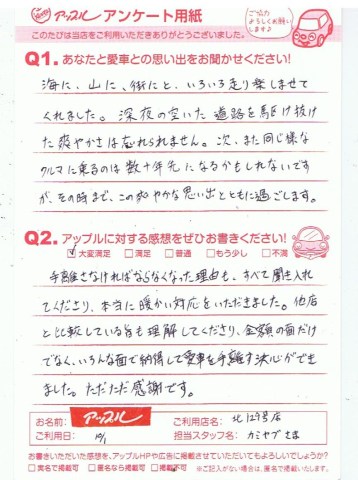 アップル アンケート用紙
ご協力
よろしくお願い
します!
このたびは当店をご利用いただきありがとうございました。
Q1. あなたと愛車との思い出をお聞かせください!
海に、山に、街にと、いろいろ走り楽しませて
くれました。深夜の空いた道路を駆け抜け
た爽やかさは忘れられません。次、また同じ様な
クルマに乗るのは数十年先になるかもしれないです
が、その時まで、この爽やかな思い出とともに過ごします。
Q2. アップルに対する感想をぜひお書きください!
☑大変満足 □満足 □普通 □もう少し □不満
手離さなければならなくなった理由も、すべて聞き入れ
てくださり、本当に暖かい対応をいただきました。他店
と比較している旨も理解してくださり、金額の面だけ
でなく、いろんな面で納得して愛車を手離す決心ができ
ました。ただただ感謝です。
お名前: アップル ご利用店名: 北129号店
ご利用日: 10/1 担当スタッフ名: カミヤブさま
お書きいただいた感想を、アップルHPや広告に掲載させていただいてもよろしいでしょうか?
□実名で掲載可 □匿名なら掲載可 □掲載不可 ※ご記入がない場合は、匿名で掲載いたします。